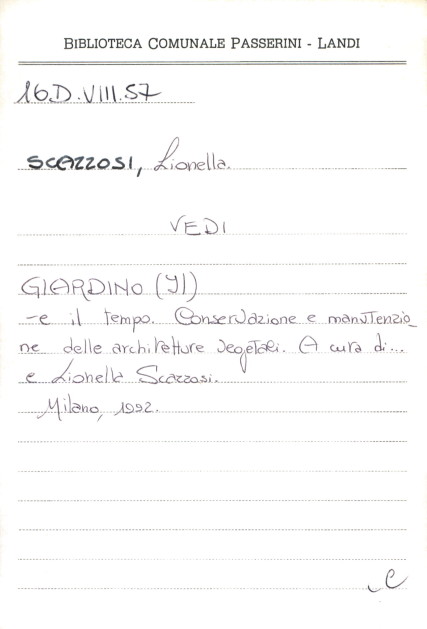 BIBLIOTECA COMUNALE PASSERINI - LANDI
16.D.VIII.57
SCAZZOSI, Lionella.
VEDI
GIARDINO (Il)
-e il tempo. Conservazione e manutenzio_
ne delle architetture vegetali. A cura di...
e Lionella Scazzosi.
Milano, 1992.